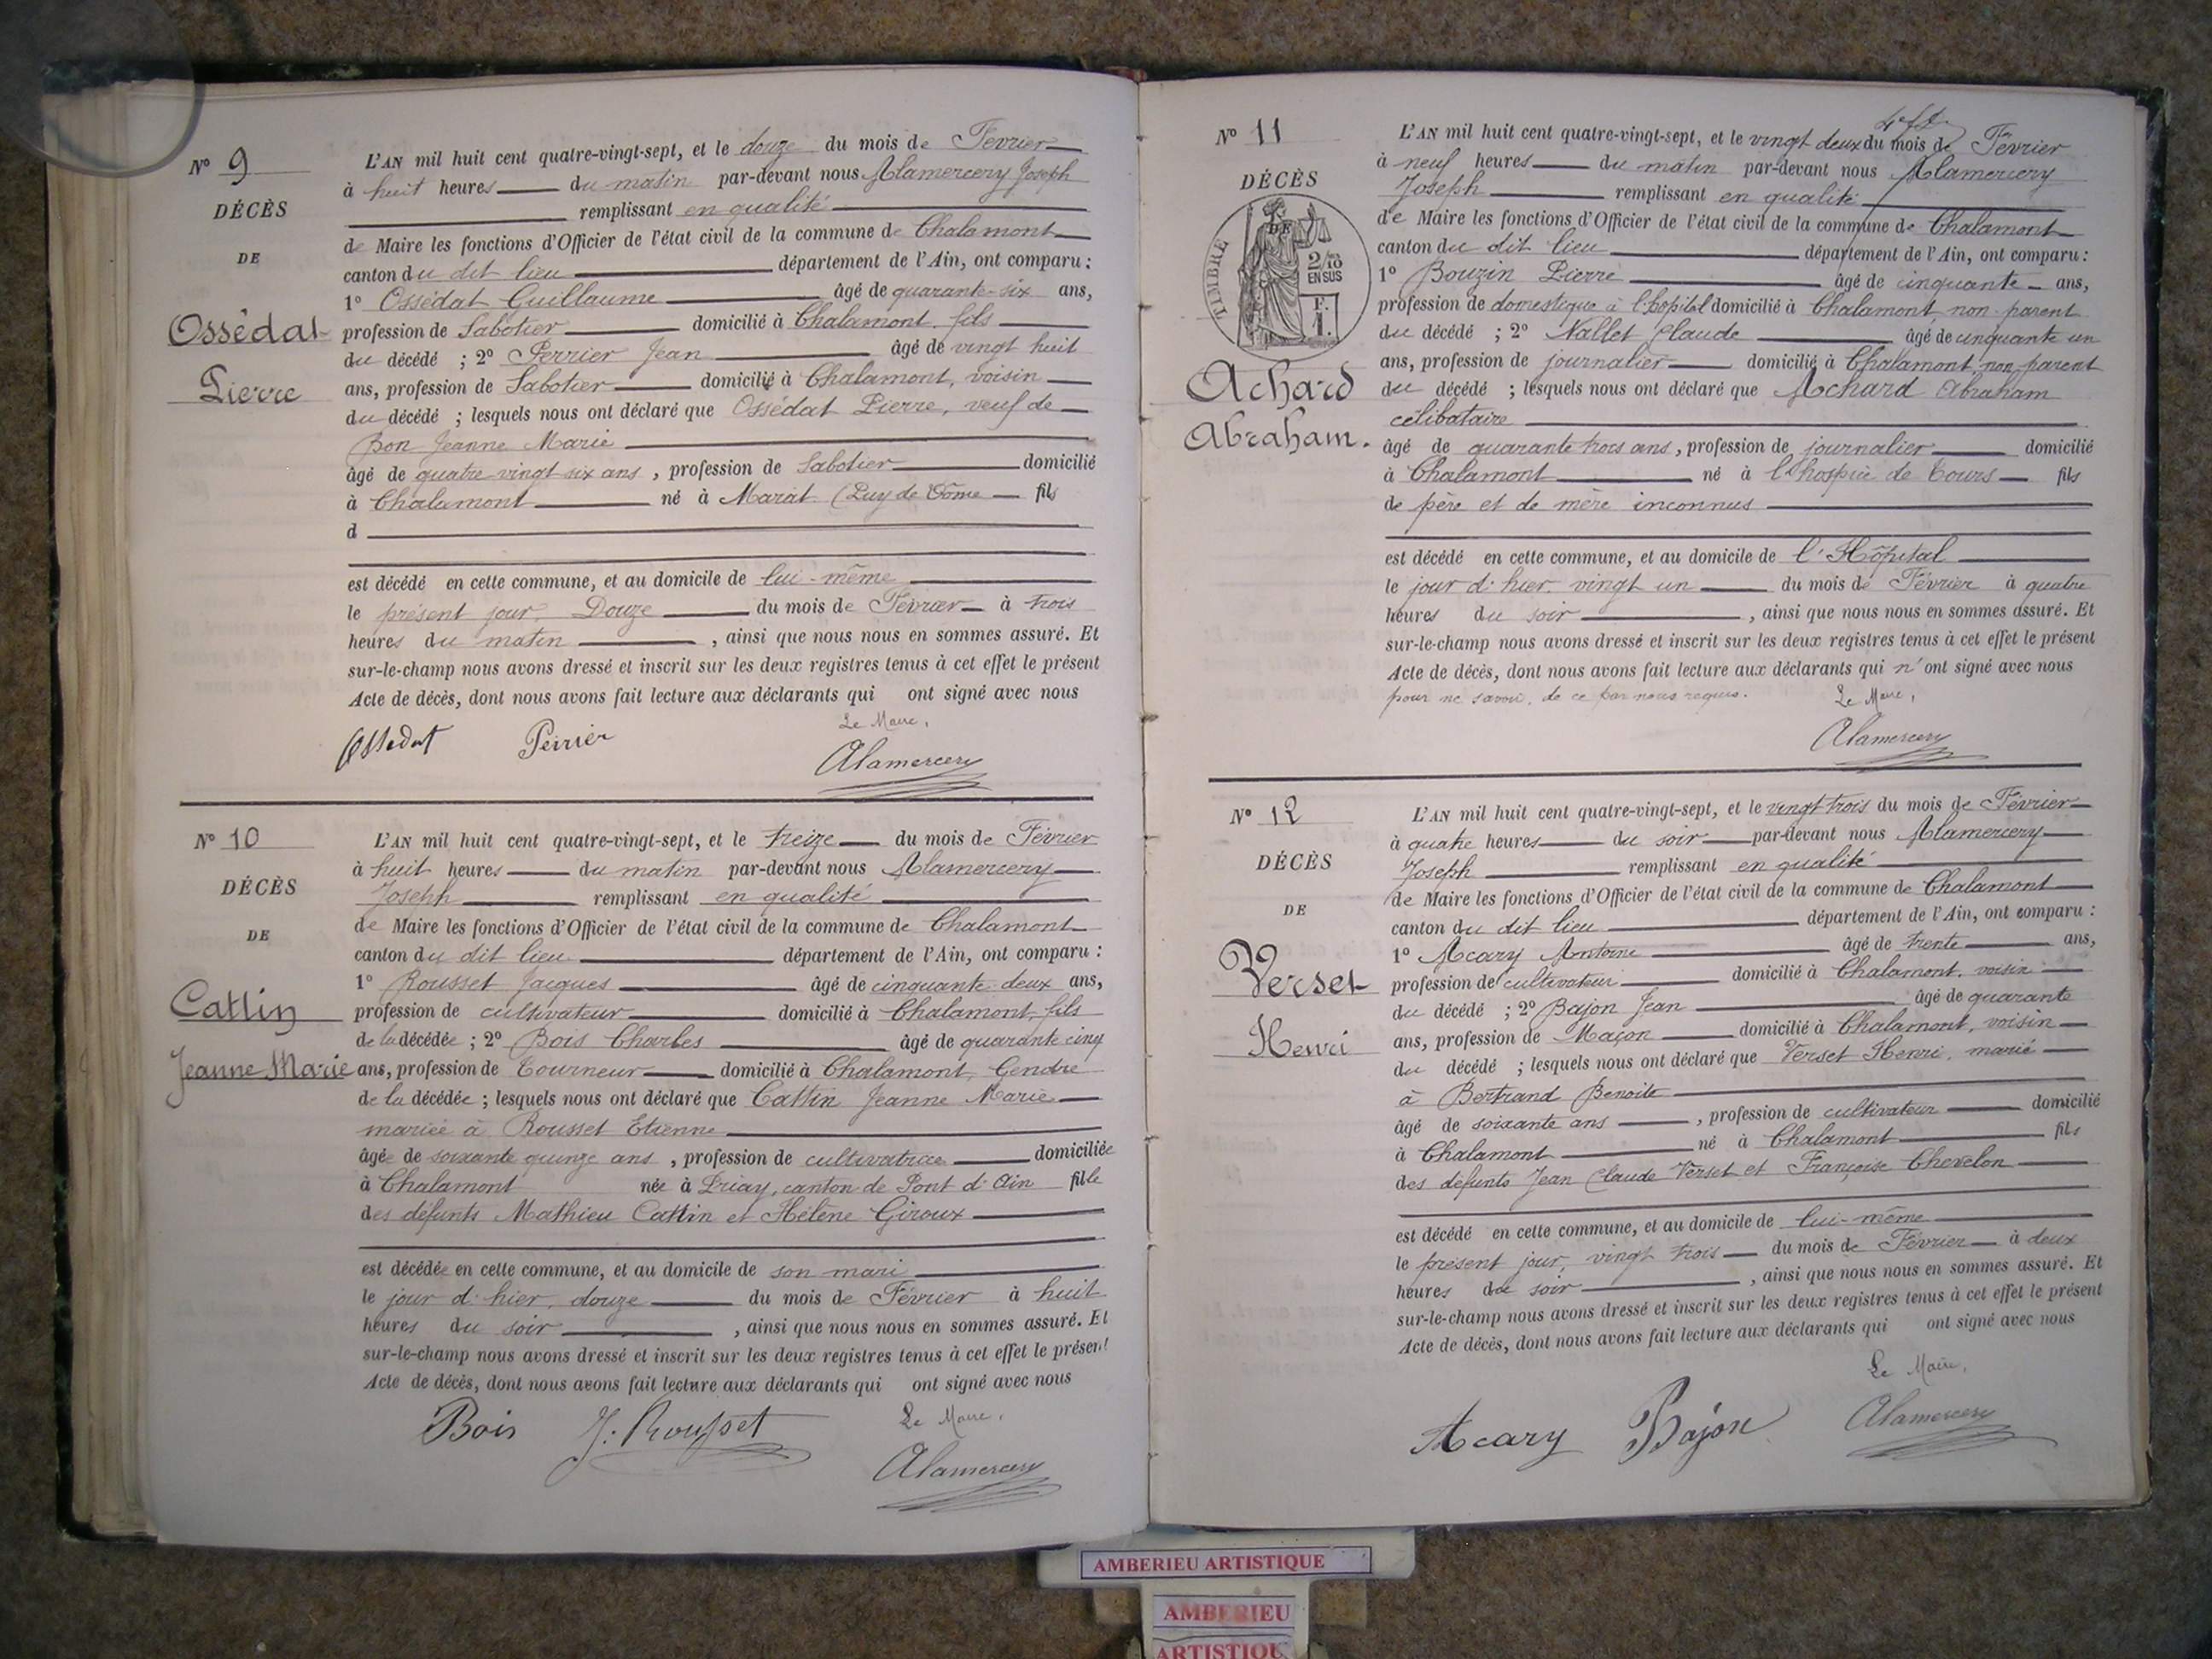 N° 9
DÉCÈS
DE
Ossédat
Pierre
L'AN mil huit cent quatre-vingt-sept, et le douze du mois de Février
à huit heures du matin par-devant nous Alamercery Joseph
remplissant en qualité
de Maire les fonctions d'Officier de l'état civil de la commune de Chalamont
canton du dit lieu département de l'Ain, ont comparu :
1° Ossédat Guillaume âgé de quarante-six ans,
profession de Sabotier domicilié à Chalamont, fils
du décédé ; 2° Perrier Jean âgé de vingt huit
ans, profession de Sabotier domicilié à Chalamont, voisin
du décédé ; lesquels nous ont déclaré que Ossédat Pierre, veuf de
Bon Jeanne Marie
âgé de quatre-vingt-six ans, profession de Sabotier domicilié
à Chalamont né à Marat (Puy de Dôme fils
d
est décédé en cette commune, et au domicile de lui-même
le présent jour, Douze du mois de Février à trois
heures du matin, ainsi que nous nous en sommes assuré. Et
sur-le-champ nous avons dressé et inscrit sur les deux registres tenus à cet effet le présent
Acte de décès, dont nous avons fait lecture aux déclarants qui ont signé avec nous
Le Maire,
Ossedat Perrier Alamercery
N° 10
DÉCÈS
DE
Cattin
Jeanne Marie
L'AN mil huit cent quatre-vingt-sept, et le treize du mois de Février
à huit heures du matin par-devant nous Alamercery
Joseph remplissant en qualité
de Maire les fonctions d'Officier de l'état civil de la commune de Chalamont
canton du dit lieu département de l'Ain, ont comparu :
1° Rousset Jacques âgé de cinquante-deux ans,
profession de cultivateur domicilié à Chalamont, fils
de la décédée ; 2° Bois Charles âgé de quarante cinq
ans, profession de Tourneur domicilié à Chalamont, Gendre
de la décédée ; lesquels nous ont déclaré que Cattin Jeanne Marie
mariée à Rousset Etienne
âgée de soixante quinze ans, profession de cultivatrice domiciliée
à Chalamont née à Priay, canton de Pont d'Ain fille
des défunts Mathieu Cattin et Hélène Giroux
est décédée en cette commune, et au domicile de son mari
le jour d'hier, douze du mois de Février à huit
heures du soir, ainsi que nous nous en sommes assuré. Et
sur-le-champ nous avons dressé et inscrit sur les deux registres tenus à cet effet le présent
Acte de décès, dont nous avons fait lecture aux déclarants qui ont signé avec nous
Le Maire,
Bois J. Rousset Alamercery
N° 11
DÉCÈS
DE
TIMBRE
2/10
EN SUS
F.
1.
Achard
Abraham.
L'AN mil huit cent quatre-vingt-sept, et le vingt deux du mois de Février
à neuf heures du matin par-devant nous Alamercery
Joseph remplissant en qualité
de Maire les fonctions d'Officier de l'état civil de la commune de Chalamont
canton du dit lieu département de l'Ain, ont comparu :
1° Bouzin Pierre âgé de cinquante ans,
profession de domestique à l'hôpital domicilié à Chalamont non parent
du décédé ; 2° Nallet Claude âgé de cinquante un
ans, profession de journalier domicilié à Chalamont non parent
du décédé ; lesquels nous ont déclaré que Achard Abraham
célibataire
âgé de quarante trois ans, profession de journalier domicilié
à Chalamont né à l'hospice de Tours fils
de père et de mère inconnus
est décédé en cette commune, et au domicile de l'Hôpital
le jour d'hier, vingt un du mois de Février à quatre
heures du soir, ainsi que nous nous en sommes assuré. Et
sur-le-champ nous avons dressé et inscrit sur les deux registres tenus à cet effet le présent
Acte de décès, dont nous avons fait lecture aux déclarants qui n'ont signé avec nous
pour ne savoir, de ce par nous requis. Le Maire,
Alamercery
N° 12
DÉCÈS
DE
Verset
Henri
L'AN mil huit cent quatre-vingt-sept, et le vingt trois du mois de Février
à quatre heures du soir par-devant nous Alamercery
Joseph remplissant en qualité
de Maire les fonctions d'Officier de l'état civil de la commune de Chalamont
canton du dit lieu département de l'Ain, ont comparu :
1° Acary Antoine âgé de trente ans,
profession de cultivateur domicilié à Chalamont, voisin
du décédé ; 2° Bajon Jean âgé de quarante
ans, profession de Maçon domicilié à Chalamont, voisin
du décédé ; lesquels nous ont déclaré que Verset Henri, marié
à Bertrand Benoite
âgé de soixante ans, profession de cultivateur domicilié
à Chalamont né à Chalamont fils
des défunts Jean Claude Verset et Françoise Chevelon
est décédé en cette commune, et au domicile de lui-même
le présent jour, vingt trois du mois de Février à deux
heures du soir, ainsi que nous nous en sommes assuré. Et
sur-le-champ nous avons dressé et inscrit sur les deux registres tenus à cet effet le présent
Acte de décès, dont nous avons fait lecture aux déclarants qui ont signé avec nous
Le Maire,
Acary Bajon Alamercery
AMBERIEU ARTISTIQUE
AMBERIEU
ARTISTIQU